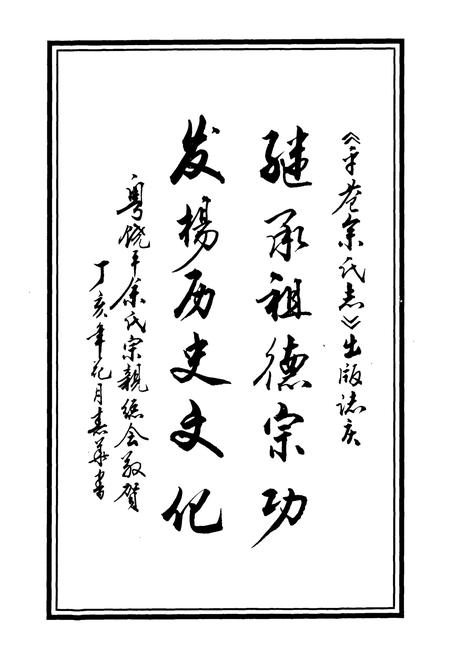 《平苍余氏志》出版志庆
继承祖德宗功
发杨历史文化
粤饶平余氏宗親总会敬贺
丁亥年花月春华书